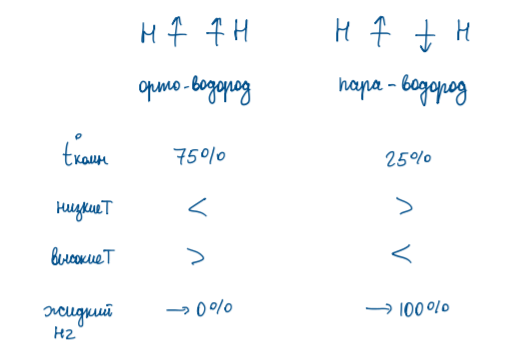 H ↑ ↑ H H ↑ ↓ H
орто-водород пара-водород
t°комн 75% 25%
низкиеT < >
высокиеT > <
жидкий H2 → 0% → 100%